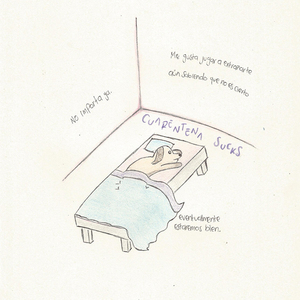 Me gusta jugar a extrañarte
aún sabiendo que no es cierto
No importa ya.
CUARENTENA
SUCKS
eventualmente
estaremos bien.